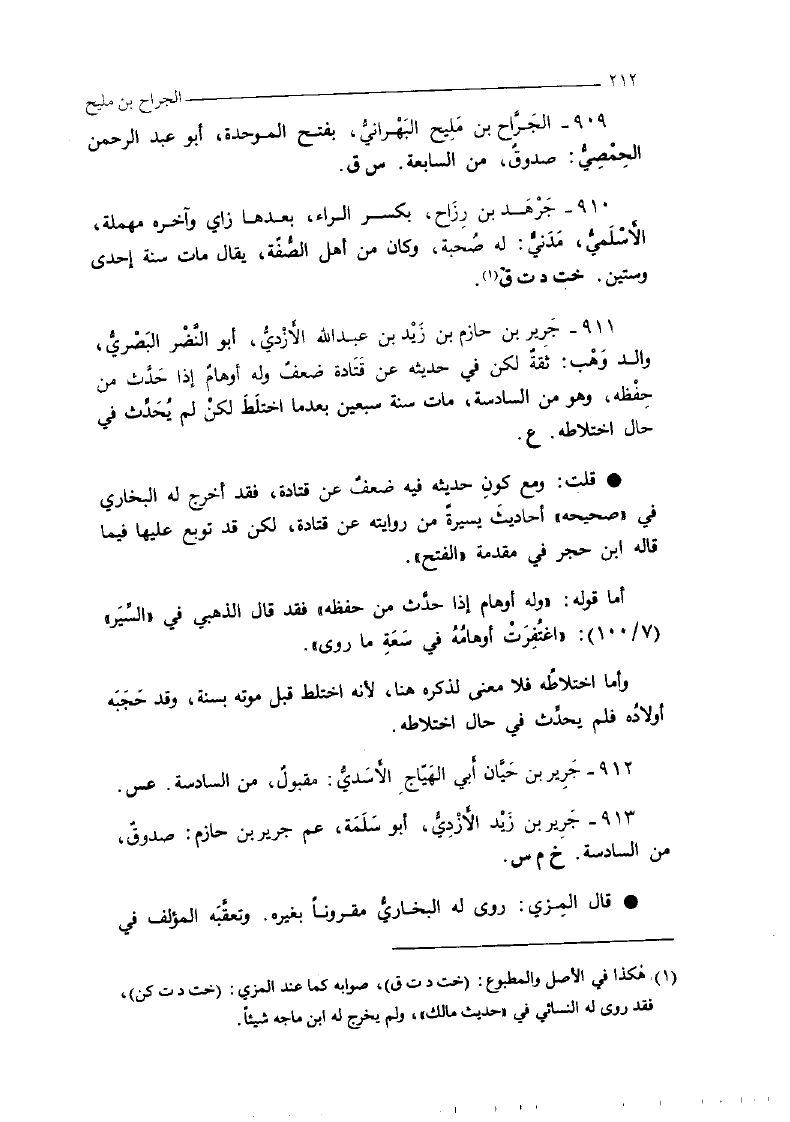 ٢١٢ الجراح بن مليح
٩٠٩ ـ الجَرَّاح بن مَلِيح البَهْرانيُّ، بفتح الموحدة، أبو عبد الرحمن
الحِمْصِيُّ: صدوقٌ، من السابعة. س ق.
٩١٠ ـ جَرْهَد بن رِزَاح، بكسر الراء، بعدها زاي وآخره مهملة،
الأَسْلَميُّ، مَدَنيٌّ: له صُحبة، وكان من أهل الصُّفّة، يقال مات سنة إحدى
وستين. خت د ت ق(١).
٩١١ ـ جَرير بن حازم بن زَيْد بن عبدالله الأَزْديُّ، أبو النَّضْر البَصْريُّ،
والد وَهْب: ثقةٌ لكن في حديثه عن قَتَادة ضعفٌ وله أوهامٌ إذا حَدَّث من
حِفْظه، وهو من السادسة، مات سنة سبعين بعدما اختلَطَ لكنْ لم يُحَدِّث في
حال اختلاطه. ع.
● قلت: ومع كونِ حديثه فيه ضعفٌ عن قتادة، فقد أخرج له البخاري
في «صحيحه» أحاديثَ يسيرةً من روايته عن قتادة، لكن قد توبع عليها فيما
قاله ابن حجر في مقدمة «الفتح».
أما قوله: «وله أوهام إذا حدَّث من حفظه» فقد قال الذهبي في «السِّيَر»
(٧/١٠٠): «اغتُفِرَتْ أوهامُهُ في سَعَةِ ما روى».
وأما اختلاطُه فلا معنى لذكره هنا، لأنه اختلط قبل موته بسنة، وقد حَجَبَه
أولادُه فلم يحدِّث في حال اختلاطه.
٩١٢ ـ جَرِير بن حَيَّان أبي الهَيّاجِ الأَسَديُّ: مقبولٌ، من السادسة. عس.
٩١٣ ـ جَرِير بن زَيْد الأَزْدِيُّ، أبو سَلَمَة، عم جرير بن حازم: صدوقٌ،
من السادسة. خ م س.
● قال المِزي: روى له البخاريُّ مقروناً بغيره. وتعقَّبَه المؤلف في
(١) هٰكذا في الأصل والمطبوع: (خت د ت ق)، صوابه كما عند المزي: (خت د ت كن)،
فقد روى له النسائي في «حديث مالك»، ولم يخرج له ابن ماجه شيئاً.